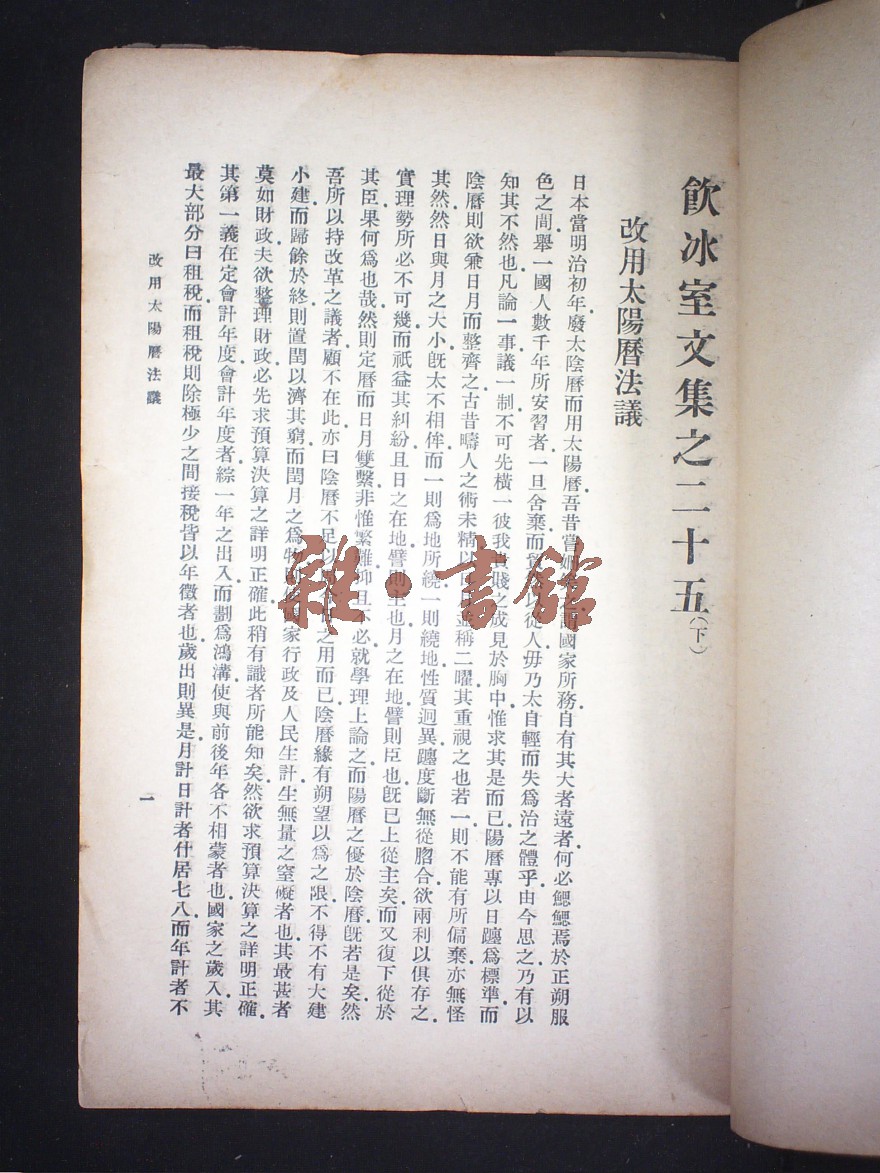 飲冰室文集之二十五(下)
改用太陽曆法議
日本當明治初年廢太陰曆而用太陽曆吾昔嘗 國家所務自有其大者遠者何必鰓鰓焉於正朔服
色之間舉一國人數千年所安習者一旦舍棄而 以從人毋乃太自輕而失爲治之體乎由今思之乃有以
知其不然也凡論一事議一制不可先橫一彼我貴賤之成見於胸中惟求其是而已陽曆專以日躔爲標準而
陰曆則欲兼日月而整齊之古昔疇人之術未精以 並稱二曜其重視之也若一則不能有所偏棄亦無怪
其然然日與月之大小旣太不相侔而一則爲地所繞一則繞地性質迥異躔度斷無從脗合欲兩利以俱存之
實理勢所必不可幾而祇益其糾紛且日之在地譬則主也月之在地譬則臣也旣已上從主矣而又復下從於
其臣果何爲也哉然則定曆而日月雙繫非惟繁難抑且不必就學理上論之而陽曆之優於陰曆旣若是矣然
吾所以持改革之議者顧不在此亦曰陰曆不足以 之用而已陰曆緣有朔望以爲之限不得不有大建
小建而歸餘於終則置閏以濟其窮而閏月之爲物 國家行政及人民生計生無量之窒礙者也其最甚者
莫如財政夫欲整理財政必先求預算決算之詳明正確此稍有識者所能知矣然欲求預算決算之詳明正確
其第一義在定會計年度會計年度者綜一年之出入而劃爲鴻溝使與前後年各不相蒙者也國家之歲入其
最大部分曰租稅而租稅則除極少之間接稅皆以年徵者也歲出則異是月計日計者什居七八而年計者不
改用太陽曆法議
一
雜·書館